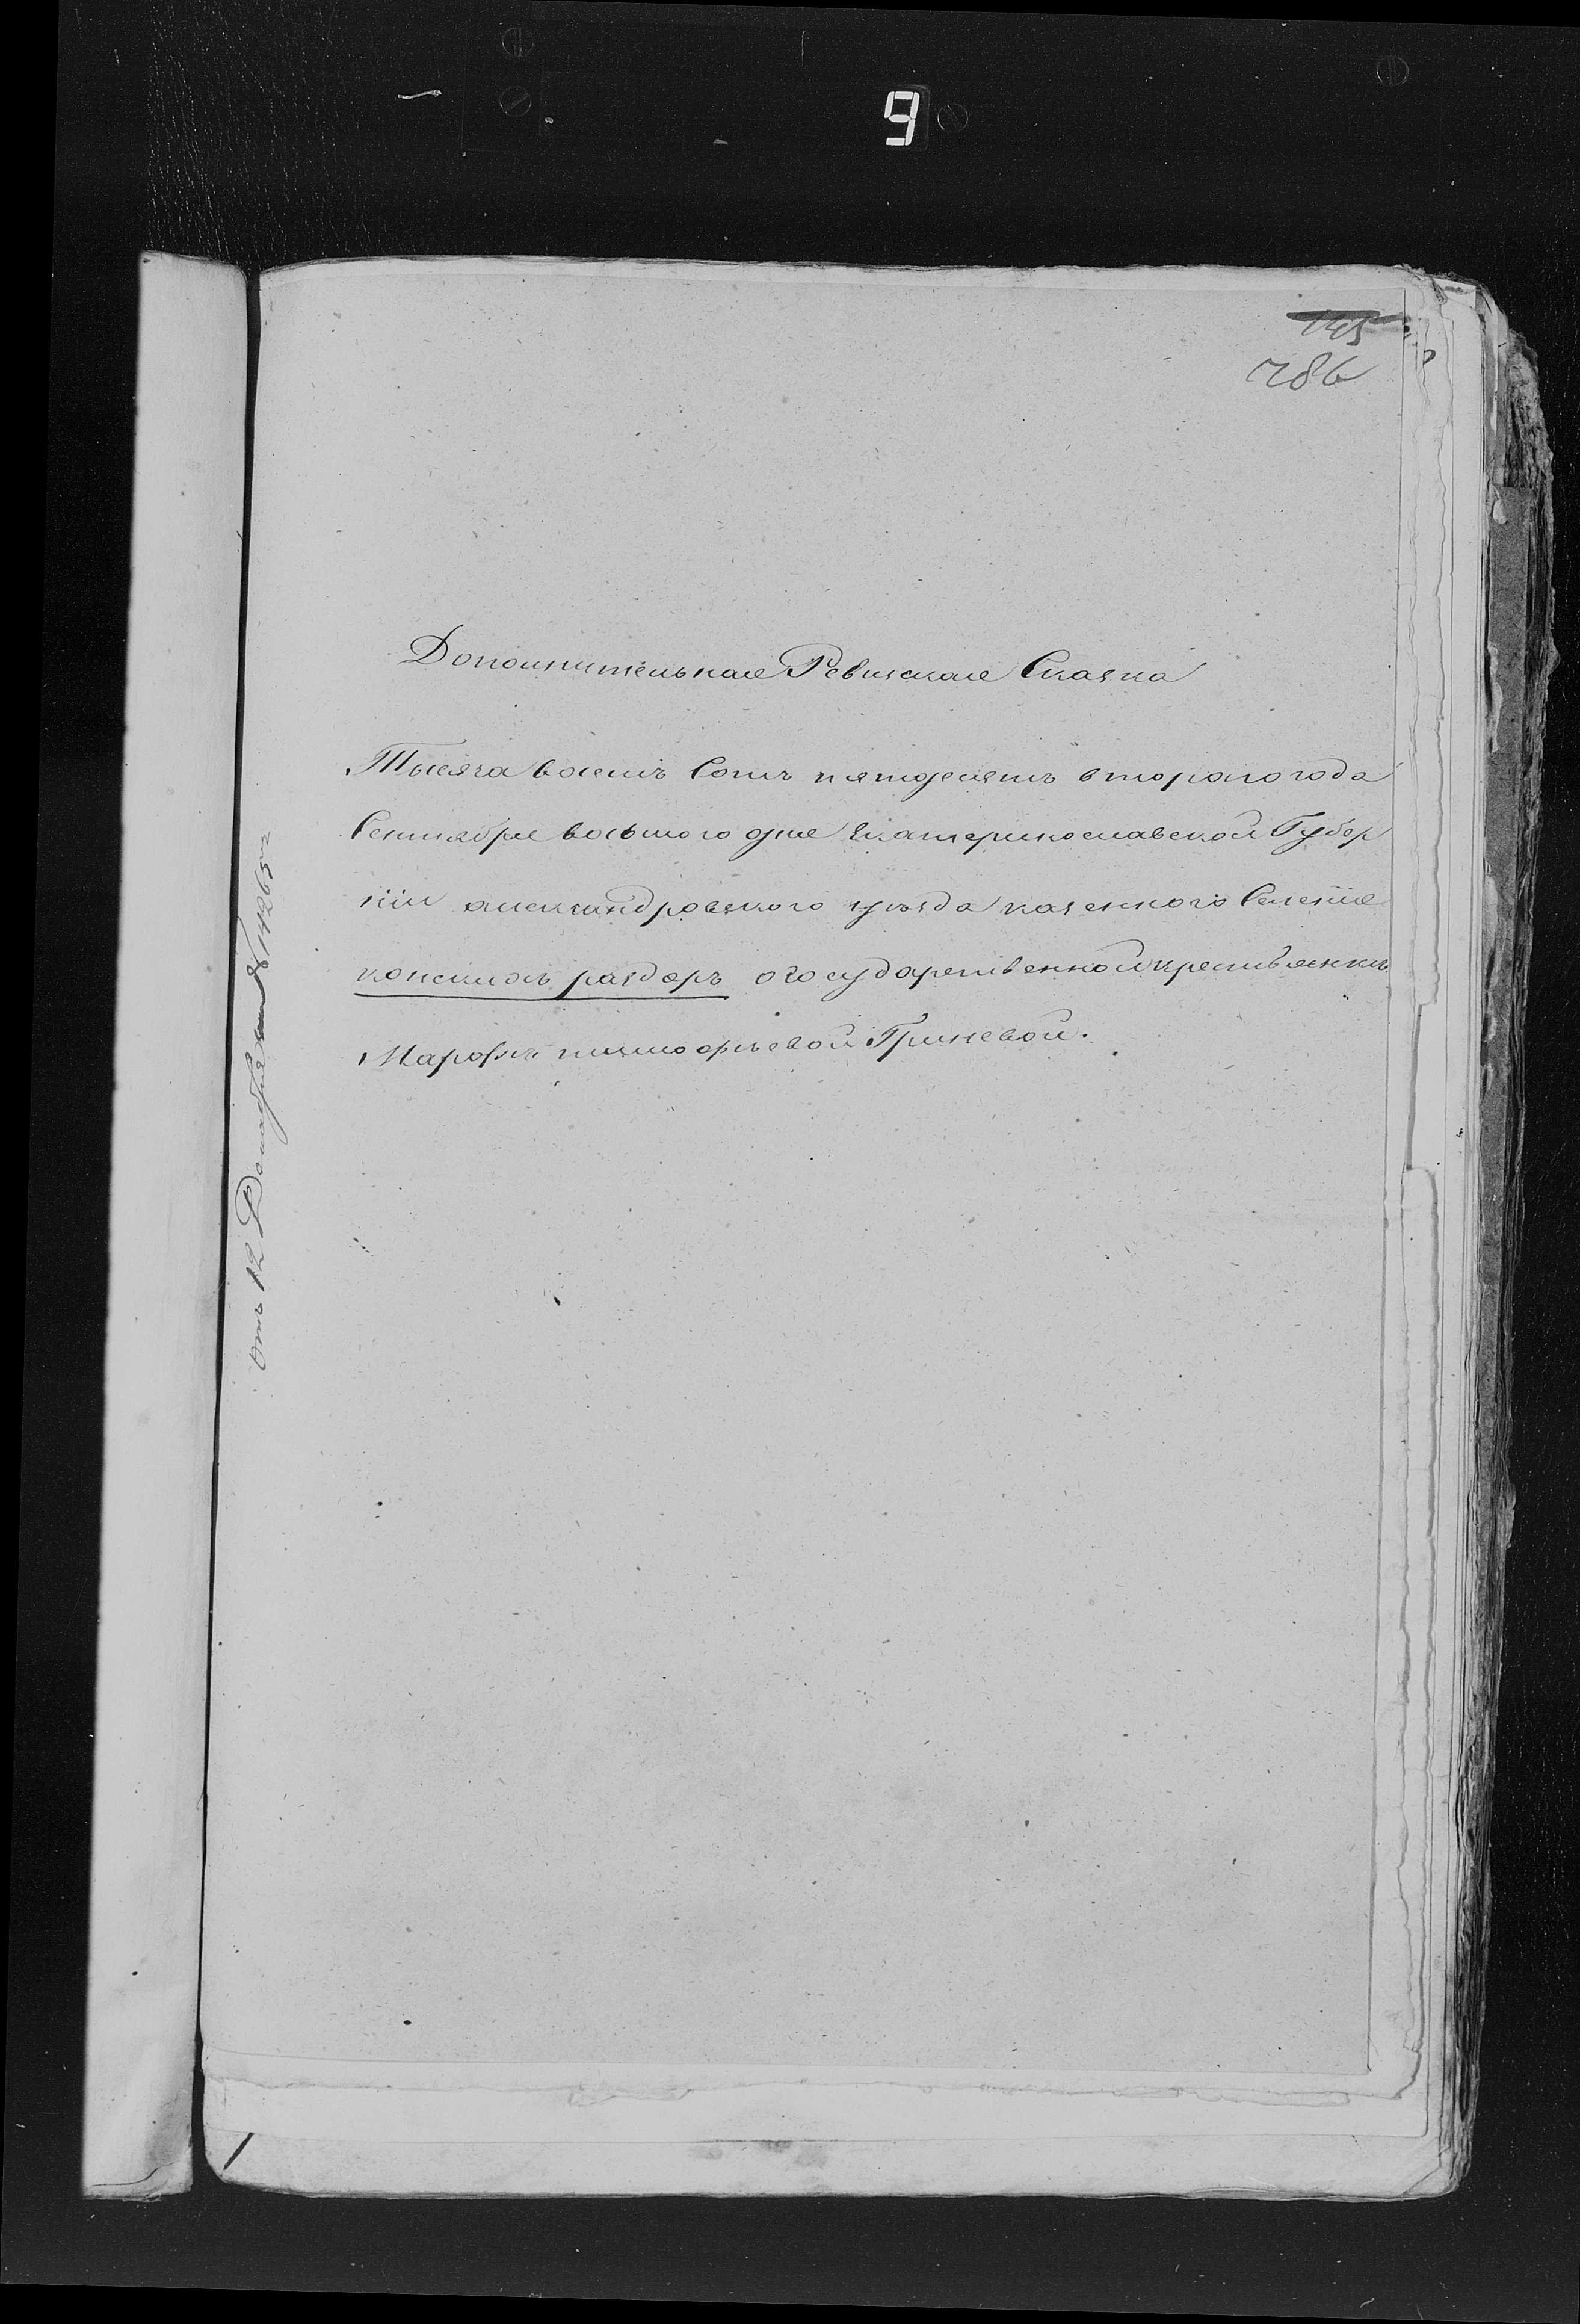 9
145
286
Дополнительная Ревизская Сказка
Тысяча восемь Сотъ пятдесятъ второго года
Сентября восьмого дня Екатеринославской Губер
ніи александровского уѣзда казенного Селенія
конскихъ раздоръ о государственной крестьянкѣ
Марофѣ тимофѣевой Гриневой.
отъ 12 Декабря № 14265